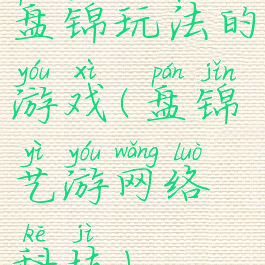 盘锦玩法的
yóu xì pán jǐn
游戏(盘锦
yì yóu wǎng luò
艺游网络
kē jì
科技)